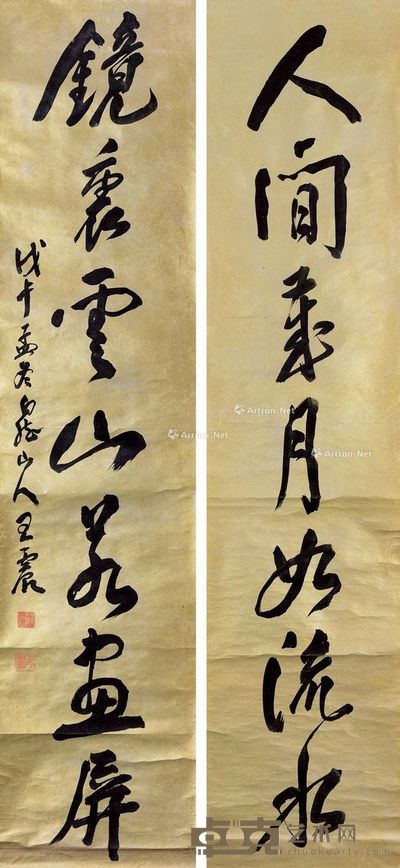 人間歲月如流水
鏡裏雲山若畫屏
戊午孟冬白龍山人王震
Artron.Net
Artron.Net
Artron.Net
Artron.Net
卓克艺术网
zhuokearts.com